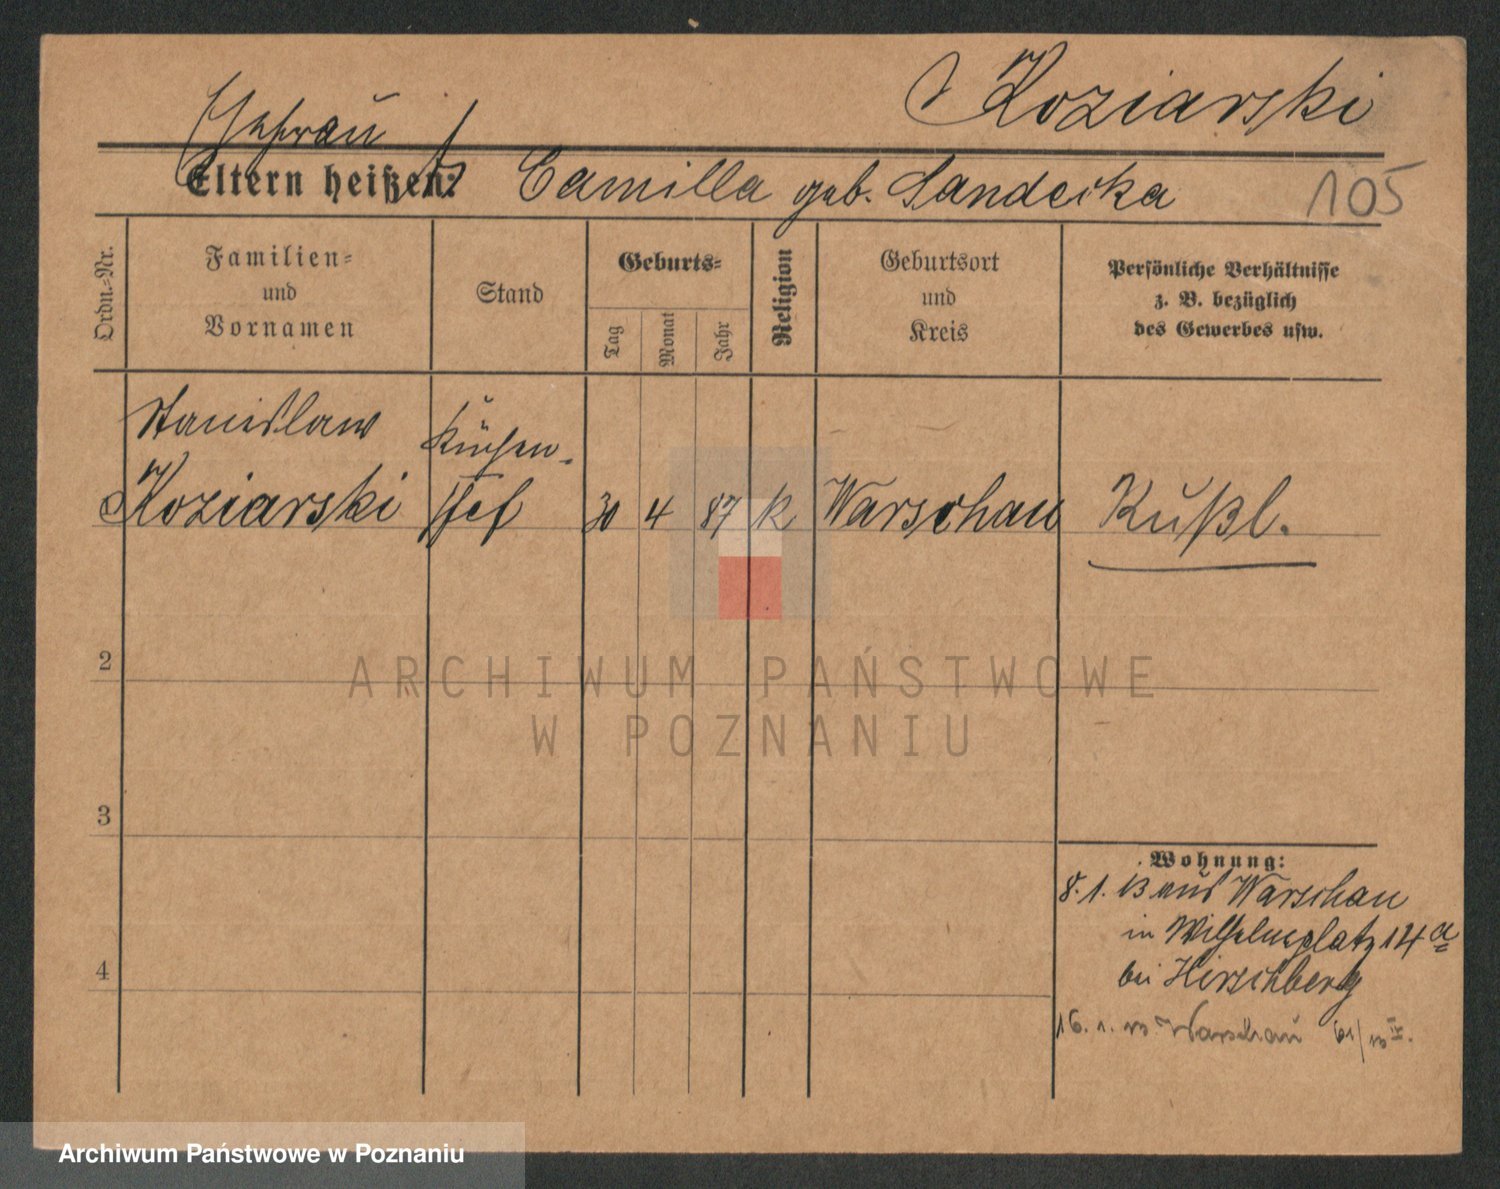 Koziarski
Ehefrau
Eltern heißen: Camilla geb. Sandecka
105
Ordn.-Nr.
Familien-
und
Vornamen
Stand
Geburts-
Tag
Monat
Jahr
Religion
Geburtsort
und
Kreis
Persönliche Verhältnisse
z. B. bezüglich
des Gewerbes usw.
Stanislaw
Koziarski
Küchen-
chef
30 4 87 K Warschau Rußl.
2
3
4
Wohnung:
8. 1. 13 aus Warschau
in Wilhelmsplatz 14a
bei Hirschberg
16. 1. 13 Warschau
ARCHIWUM PAŃSTWOWE
W POZNANIU
Archiwum Państwowe w Poznaniu